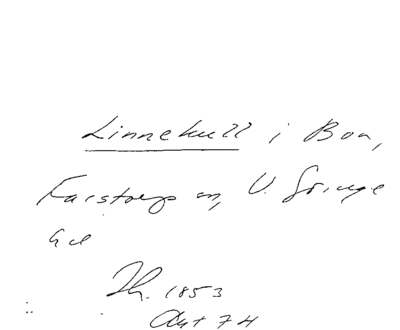 Linnekull i Boa,
Farstorps sn, V. Göinge
hd
Th. 1853
Akt 74